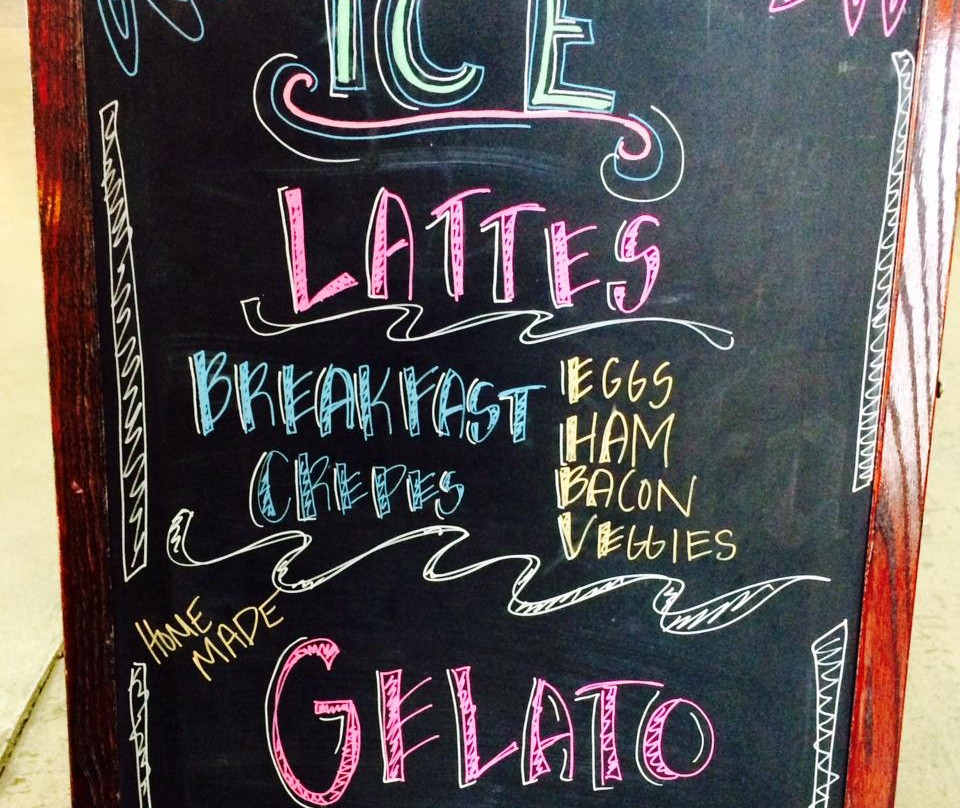 ICE
LATTES
BREAKFAST
CREPES
EGGS
HAM
BACON
VEGGIES
HOME
MADE
GELATO